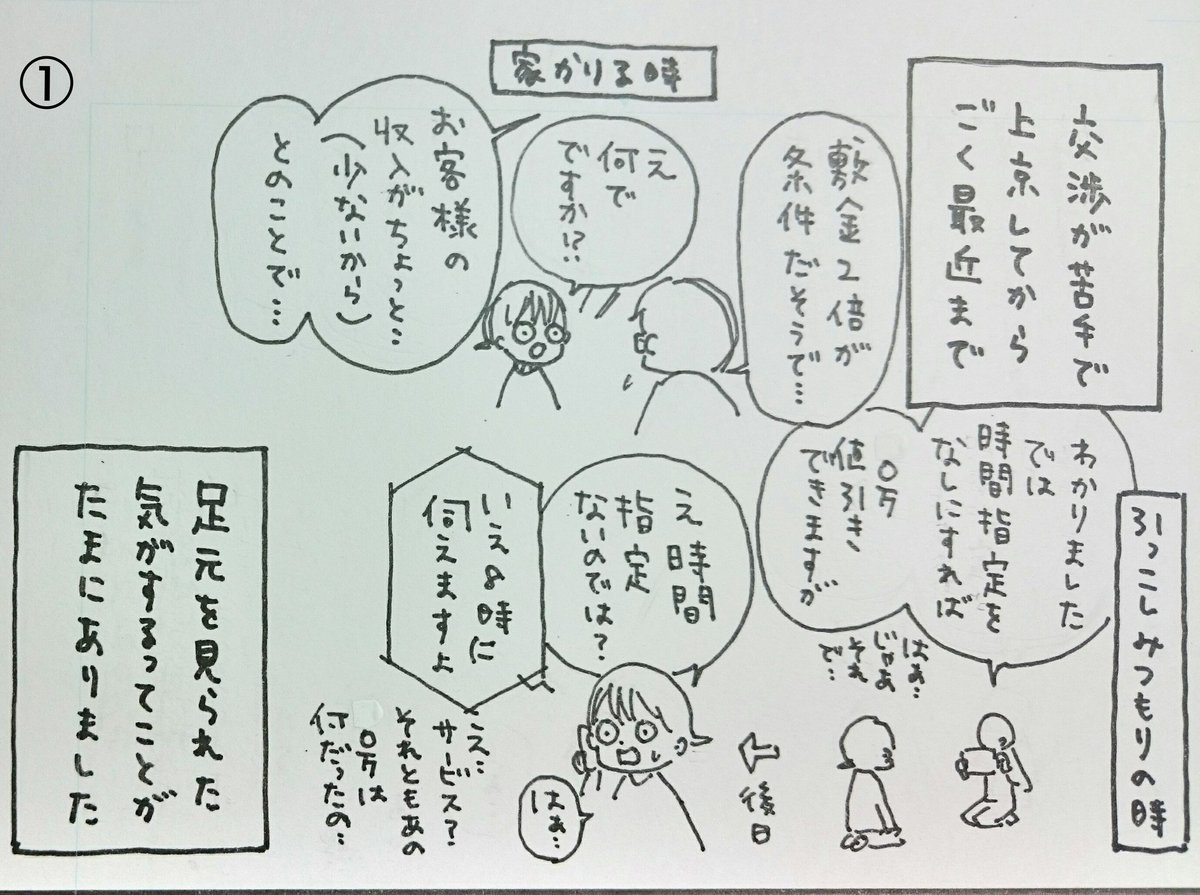 ①
交渉が苦手で
上京してから
ごく最近まで
家かりる時
敷金2倍が
条件だそうで…
え
何で
ですか!?
お客様の
収入がちょっと…
(少ないから)
とのことで…
引っこしみつもりの時
わかりました
では
時間指定を
なしにすれば
〇万
値引き
できますが
はぁ…
じゃあ
それ
で…
後日
え 時間
指定
ないのでは?
いえ8時に
伺えますよ
はぁ…
え…
サービス?
それともあの
〇万は
何だったの…
足元を見られた
気がするってことが
たまにありました